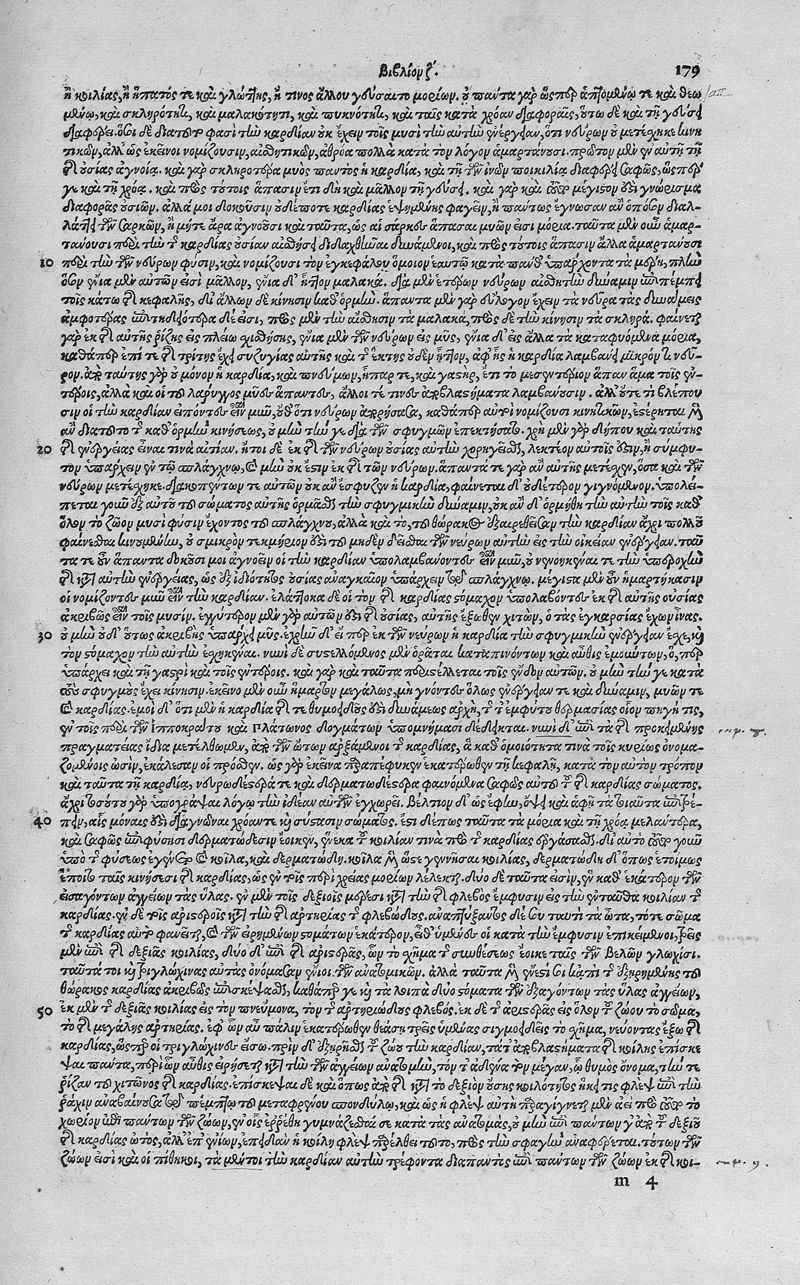 Βιβλίον ζ. 179
ἢ κοιλίας, ἢ ἥπατός τε καὶ γλώττης, ἤ τινος ἄλλου γεύσαιτο μορίων. ὁ πάντα γὰρ ὥσπερ ἁπτομένῳ τε καὶ θεω
μένῳ, καὶ σκληρότητι, καὶ μαλακότητι, καὶ πυκνότητι, καὶ ταῖς κατὰ χρόαν διαφοραῖς, οὕτω δὲ καὶ τῇ γεύσει
διαφέρει. ὅσοι δὲ διὰ τοῦτό φασι τὴν καρδίαν οὐκ ἔχειν τοῖς μυσὶ τὴν αὐτὴν ἐνέργειαν, ὅτι νεύρων οὐ μετέχηκε κινη
τικῶν, ἀλλ' ὡς ἐκεῖνοι νομίζουσιν, αἰσθητικῶν, ἀθρόα πολλὰ κατὰ τὸν λόγον ἁμαρτάνουσι. πρῶτον μὲν ἐν αὐτῇ τῇ
τῆς οὐσίας ἀγνοίᾳ. καὶ γὰρ σκληροτέρα μυὸς παντὸς ἡ καρδία, καὶ τῇ τῶν ἰνῶν ποικιλίᾳ διαφέρει σαφῶς, ὥσπερ
γε καὶ τῇ χρόᾳ. καὶ πρὸς τούτοις ἅπασιν ἔτι δὴ καὶ μᾶλλον τῇ γεύσει. καὶ γὰρ καὶ τοῦτο μέγιστον ἐστὶ γνώρισμα
διαφορᾶς οὐσιῶν. ἀλλά μοι δοκοῦσιν οὐδέποτε καρδίας ἑψημένης φαγεῖν, ἢ πάντως ἔγνωσαν ἂν ὁπόσον διαλ-
λάττει σαρκῶν, ἢ μήτε ἄρα ἀγνοεῖσι καὶ ταῦτα, ὡς αἱ σάρκες ἅπασαι μυῶν εἰσι μόρια. ταῦτα μὲν οὖν ἁμαρ-
τάνουσι περὶ τὴν τῆς καρδίας οὐσίαν αἰσθήσει διδαχθῆναι δυνάμενοι, καὶ πρὸς τούτοις ἅπασιν ἄλλα ἁμαρτάνουσι
10 περὶ τὴν τῶν νεύρων φύσιν, καὶ νομίζουσι τὸν ἐγκέφαλον ὅμοιον ἑαυτῷ κατὰ πάνθ' ὑπάρχοντα τὰ μέρη, πλὴν
ὅσον ἔνια μὲν αὐτῶν ἐστὶ μᾶλλον, ἔνια δ' ἧττον μαλακά. διὰ μὲν ἑτέρων νεύρων αἰσθητικὴν δύναμιν ἐπιπέμπει
τοῖς κάτω τῆς κεφαλῆς, δι' ἄλλων δὲ κίνησιν καθ' ὁρμήν. ἅπαντα μὲν γὰρ εὔλογον ἔχειν τὰ νεῦρα τὰς δυνάμεις
ἀμφοτέρας ἐπιτηδειότερα δέ εἰσι, πρὸς μὲν τὴν αἴσθησιν τὰ μαλακά, πρὸς δὲ τὴν κίνησιν τὰ σκληρά. φαίνεται
γὰρ ἐκ τῆς αὐτῆς ῥίζης εἰς πλείω σχισθείσης, ἔνια μὲν τῶν νεύρων εἰς μῦς, ἔνια δ' εἰς ἄλλα τὰ καταφυόμενα μόρια,
καθάπερ ἐπί τε τῆς τρίτης ἔχει συζυγίας αὐτῆς καὶ τῆς ἕκτης οὐδὲν ἧττον, ἀφ' ἧς ἡ καρδία λαμβάνει μικρόν τι νεῦ-
ρον. ἀπὸ ταύτης γὰρ οὐ μόνον ἡ καρδία, καὶ πνεύμων, ἧπαρ τε, καὶ γαστήρ, ἔτι τὸ μεσεντέριον ἅπαν ἅμα τοῖς ἐν-
τέροις, ἀλλὰ καὶ οἱ τοῦ λάρυγγος μύες ἅπαντες, ἄλλοι τέ τινες ἀποβλαστήματα λαμβάνουσιν. ἀλλ' οὔτε τι βλέπου
σιν οἱ τὴν καρδίαν εἰπόντες εἶναι μῦν, εὐθὺς ὅτι νεύρων ἀποροῦσα, καθάπερ αὐτοὶ νομίζουσι κινητικῶν, ἐστέρηται μὲν
ἂν διὰ τοῦτο τῆς καθ' ὁρμὴν κινήσεως, οὐ μὴν τήν γε διὰ τῶν σφυγμῶν ἐπεκτήσατο. χρὴ μὲν γὰρ δήπου καὶ ταύτης
20 τῆς ἐνεργείας εἶναί τινα αἰτίαν. ἤτοι δὲ ἐκ τῆς τῶν νεύρων οὐσίας αὐτὴν χορηγεῖσθαι, λεκτέον αὐτοῖς ἐστιν, ἢ σύμφυ-
τον ὑπάρχειν ἐν τῷ σπλάγχνῳ, οὐ μὴν οὐκ ἔστιν ἐκ τῆς τῶν νεύρων. ἅπαντα τε γὰρ ἂν αὐτῆς μετεῖχεν, ὅσα καὶ τῶν
νεύρων μετέχηκε. διακοπέντων τε αὐτῶν οὐκ ἂν ἔσφυζεν ἡ καρδία, φαίνεται δ' οὐδέτερον γιγνόμενον. ὑπολεί-
πεται γοῦν ἐξ αὐτοῦ τοῦ σώματος αὐτῆς ὁρμᾶσθαι τὴν σφυγμικὴν δύναμιν, οὐκ ἂν δ' ὁρμήθη τὴν αὐτὴν τοῖς καθ'
ὅλον τὸ ζῶον μυσὶ φύσιν ἔχοντος τοῦ σπλάγχνου, ἀλλὰ καὶ τὸ, τοῦ θώρακος ἐξαιρεθεῖσαν τὴν καρδίαν ἄχρι πολλοῦ
φαίνεσθαι κινουμένην, οὐ σμικρὸν τεκμήριόν ἐστι τοῦ μηδὲν δεῖσθαι τῶν νεύρων αὐτὴν εἰς τὴν οἰκείαν ἐνέργειαν. ταῦ
τα τε οὖν ἅπαντα δοκοῦσί μοι ἀγνοεῖν οἱ τὴν καρδίαν ὑπολαμβάνοντες εἶναι μῦν, οὐ νενοηκέναι τε τὴν ὑπεροχὴν
τῆς κατ' αὐτὴν ἐνεργείας, ὡς ἐξ ἰδιότητος οὐσίας ἀναγκαῖον ὑπάρχειν τῷ σπλάγχνῳ. μέγιστα μὲν οὖν ἡμαρτήκασιν
οἱ νομίζοντες μῦν εἶναι τὴν καρδίαν. ἐλάττονα δὲ οἱ τὸν τῆς καρδίας στόμαχον ὑπολαβόντες ἐκ τῆς αὐτῆς οὐσίας
ἀκριβῶς εἶναι τοῖς μυσίν. ἐγγύτερον μὲν γὰρ αὐτῶν ἐστι τῆς οὐσίας, αὐτῆς ἔξωθεν χιτών, ὁ τὰς ἐγκαρσίας ἔχων ἶνας.
30 οὐ μὴν οὐδ' οὗτος ἀκριβῶς ὑπάρχει μῦς. ἐχρῆν δ' εἴπερ ἐκ τῶν νεύρων ἡ καρδία τὴν σφυγμικὴν ἐνέργειαν ἔσχε, καὶ
τὸν στόμαχον τὴν αὐτὴν ἐσχηκέναι. νυνὶ δὲ συστελλόμενος μὲν ὁρᾶται καταπινόντων καὶ αὖθις ἐμούντων, ὅ, περ
ὑπάρχει καὶ τῇ γαστρὶ καὶ τοῖς ἐντέροις. καὶ γὰρ καὶ ταῦτα περιστέλλεται τοῖς ἔνδον αὐτῶν. οὐ μὴν τήν γε κατὰ
τοὺς σφυγμοὺς ἔχει κίνησιν. ἐκεῖνο μὲν οὖν ἥμαρτον μεγάλως, μὴ γνόντες ὅλως ἐνέργειάν τε καὶ δύναμιν, μυῶν τε
καὶ καρδίας. ἐμοὶ δ' ὅτι μὲν ἡ καρδία τῆς τε θυμοειδοῦς ἐστι δυνάμεως ἀρχή, τῆς τ' ἐμφύτου θερμασίας οἷον πηγή τις,
ἐν τοῖς περὶ τῶν Ἱπποκράτους καὶ Πλάτωνος δογμάτων ὑπομνήμασι δέδεικται. νυνὶ δ' ἐπὶ τὰ τῆς προκειμένης
πραγματείας ἴδια μετέλθωμεν, ἀπὸ τῶν ὤτων ἀρξάμενοι τῆς καρδίας, ἃ καθ' ὁμοιότητά τινα τοῖς κυρίως ὀνομα-
ζομένοις ὠσίν, ἐκάλεσαν οἱ πρόσθεν. ὡς γὰρ ἐκεῖνα προσπέφυκεν ἑκατέρωθεν τῇ κεφαλῇ, κατὰ τὸν αὐτὸν τρόπον
καὶ ταῦτα τῇ καρδίᾳ, νευρωδέστερά τε καὶ δερματωδέστερα φαινόμενα σαφῶς αὐτοῦ τοῦ τῆς καρδίας σώματος.
ἄχρι τοσούτου γὰρ ὑπογράψαι λόγῳ τὴν ἰδέαν αὐτῶν ἐγχωρεῖ. βέλτιον δ' ὡς ἔφην, ὄψει καὶ ἁφῇ τὰ τοιαῦτα ἐπιτρέ-
40 πειν, αἷς μόναις ἐστὶ διαγνῶναι χρόαν τε καὶ σύστασιν σώματος. ἔστι δέ πως ταῦτα τὰ μόρια καὶ τῇ χρόᾳ μελάντερα,
καὶ σαφῶς ἐπιφύσεσι δερματώδεσιν ἐοικότα, ἕνεκα τοῦ κοιλίαν τινὰ πρὸ τῆς καρδίας ἐργάσασθαι. δι' αὐτὸ τοῦτο γοῦν
ὑπὸ τῆς φύσεως ἐγένετο καὶ κοῖλα, καὶ δερματώδη. κοῖλα μὲν ὥστε γεννῆσαι κοιλίας, δερματώδη δ' ὅπως ἑτοίμως
ἕποιτο ταῖς κινήσεσι τῆς καρδίας, ὡς ἐν τοῖς περὶ χρείας μορίων λέλεκται. δύο δὲ ταῦτα ἐστίν, ἓν καθ' ἑκάτερον τῶν
εἰσαγόντων ἀγγείων τὰς ὕλας. ἐν μὲν τοῖς δεξιοῖς μέρεσι κατὰ τὴν τῆς φλεβὸς ἔμφυσιν εἰς τὴν ἐνταῦθα κοιλίαν τῆς
καρδίας. ἐν δὲ τοῖς ἀριστεροῖς κατὰ τὴν τῆς ἀρτηρίας τῆς φλεβώδους. ἀναπτύξαντος δέ σου ταυτὶ τὰ ὦτα, τότε σῶμα
τῆς καρδίας αὐτῆς φανεῖται, καὶ τῶν εἰρημένων στομάτων ἑκάτερον, εἶθ' ὑμένες οἱ κατὰ τὴν ἔμφυσιν ἐπικείμενοι, τρεῖς
μὲν ἐπὶ τῆς δεξιᾶς κοιλίας, δύο δ' ἐπὶ τῆς ἀριστερᾶς, ὧν τὸ σχῆμα τῆς συνθέσεως ἔοικε ταῖς τῶν βελῶν γλωχῖσι.
ταῦτά τοι καὶ τριγλώχινας αὐτὰς ὀνόμασαν ἔνιοι τῶν ἀνατομικῶν. ἀλλὰ ταῦτα μὲν ἔνεστί σοι κἀπὶ τῆς ἐξῃρημένης τοῦ
θώρακος καρδίας ἀκριβῶς ἐπισκέψασθαι, καθάπερ γε καὶ τὰ λοιπὰ δύο στόματα τῶν ἐξαγόντων τὰς ὕλας ἀγγείων,
50 ἐκ μὲν τῆς δεξιᾶς κοιλίας εἰς τὸν πνεύμονα, τὸν τῆς ἀρτηριώδους φλεβός. ἐκ δὲ τῆς ἀριστερᾶς εἰς ὅλον τοῦ ζώου τὸ σῶμα,
τὸ τῆς μεγάλης ἀρτηρίας. ἐφ' ὧν αὖ πάλιν ἑκατέρωθεν θεάσῃ τρεῖς ὑμένας σιγμοειδεῖς τὸ σχῆμα, νεύοντας ἔξω τῆς
καρδίας, ὥσπερ οἱ τριγλώχινες εἴσω. πρὶν δ' ἐξῃρῆσθαι τοῦ ζώου τὴν καρδίαν, τά τ' ἀποβλαστήματα τῆς κοίλης ἐπίσκε
ψαι πάντα, περὶ ὧν αὖθις εἰρήσεται κατὰ τὴν τῶν ἀγγείων ἀνατομήν, τόν τ' ἀδένα τὸν μέγαν, ᾧ θυμὸς ὄνομα, τήν τε
ῥίζαν τοῦ χιτῶνος τῆς καρδίας. ἐπίσκεψαι δὲ καὶ ὅπως ἀπὸ τῆς κατὰ τὸ δεξιὸν οὖς κοιλότητος ἥκει τις φλὲψ ἐπὶ τὴν
ῥάχιν ἀναβαίνουσα τῷ πέμπτῳ τοῦ μεταφρένου σπονδύλῳ, καὶ ὡς ἡ φλὲψ αὕτη παραγίγνεται μὲν ἀεὶ πρὸς τοῦτο τὸ
χωρίον ἐπὶ πάντων τῶν ζώων, ἐν οἷς ἐρρέθη γυμνάζεσθαί σε κατὰ τὰς ἀνατομάς, οὐ μὴν ἐπὶ πάντων γ' ἀπὸ τοῦ δεξιοῦ
τῆς καρδίας ὠτός, ἀλλ' ἐπ' ἐνίων, ἐπειδὰν ἡ κοίλη φλὲψ παρέλθῃ τοῦτο, πρὸς τὴν σφαγὴν ἀναφέρεται. τούτων τῶν
ζώων εἰσὶ καὶ οἱ πίθηκοι, τὰ μέντοι τὴν καρδίαν αὐτὴν τρέφοντα διαπαντὸς ἐπὶ πάντων τῶν ζώων ἐκ τῆς κοι-
m 4